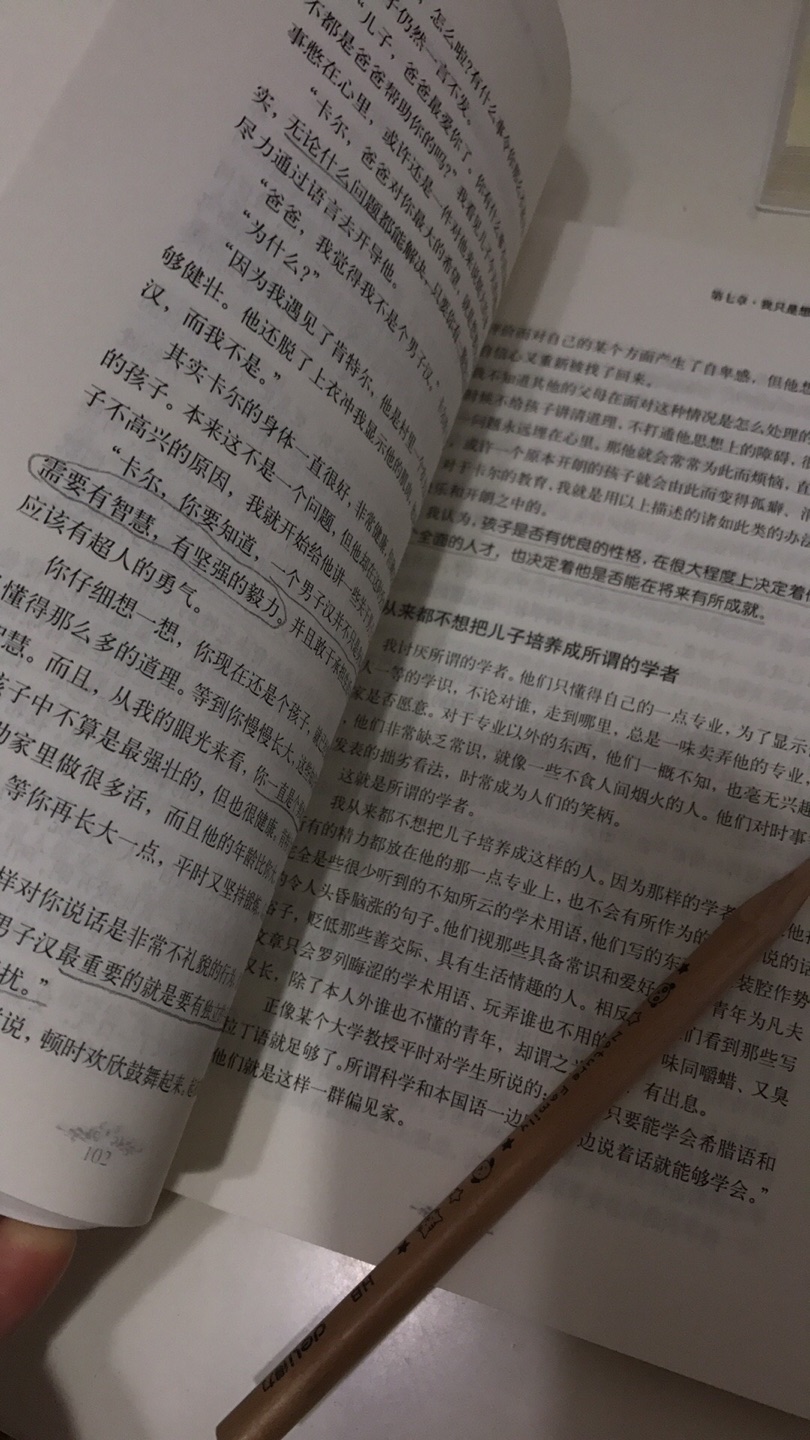 怎么啦?有什么事
子仍然一言不发。
“儿子，爸爸最爱你了。你有什么
不都是爸爸帮助你的吗?”我看见儿子
事憋在心里，或许还是一件对他来说
“卡尔，爸爸对你最大的希望，
实，无论什么问题都能解决，只要你
尽力通过语言去开导他。
“爸爸，我觉得我不是个男子汉。”
“为什么?”
“因为我遇见了肯特尔，他是村里
够健壮。他还脱了上衣冲我显示他的肌肉，
汉，而我不是。”
其实卡尔的身体一直很好，非常健康，
的孩子。本来这不是一个问题，但他却
子不高兴的原因，我就开始给他讲一些关于
“卡尔，你要知道，一个男子汉并不只是
需要有智慧，有坚强的毅力。并且敢于承担
应该有超人的勇气。
你仔细想一想，你现在还是个孩子，
懂得那么多的道理。等到你慢慢长大，这些
智慧。而且，从我的眼光来看，你一直是个
孩子中不算是最强壮的，但也很健康。
助家里做很多活，而且他的年龄比你
等你再长大一点，平时又坚持锻炼，
样对你说话是非常不礼貌的行为。
男子汉最重要的就是要有独立
扰。”
说，顿时欢欣鼓舞起来。
102
第七章·我只是想
面对自己的某个方面产生了自卑感，但他想
自信心又重新被找了回来。
我不知道其他的父母在面对这种情况是怎么处理的
时候不给孩子讲清道理，不打通他思想上的障碍，很
一问题永远埋在心里。那他就会常常为此而烦恼，直
，或许一个原本开朗的孩子就会由此而变得孤癖、消
对于卡尔的教育，我就是用以上描述的诸如此类的办法
乐和开朗之中的。
我认为，孩子是否有优良的性格，在很大程度上决定着他
个全面的人才，也决定着他是否能在将来有所成就。
从来都不想把儿子培养成所谓的学者
我讨厌所谓的学者。他们只懂得自己的一点专业，为了显示
人一等的学识，不论对谁，走到哪里，总是一味卖弄他的专业，
家是否愿意。对于专业以外的东西，他们一概不知，也毫无兴趣
，他们非常缺乏常识，就像一些不食人间烟火的人。他们对时事
发表的拙劣看法，时常成为人们的笑柄。
这就是所谓的学者。
我从来都不想把儿子培养成这样的人。因为那样的学者
所有的精力都放在他的那一点专业上，也不会有所作为的 说的话
完全是些很少听到的不知所云的学术用语，他们写的东 装腔作势
的令人头昏脑涨的句子。他们视那些具备常识和爱好 青年为凡夫
俗子，贬低那些善交际、具有生活情趣的人。相反 们看到那些写
文章只会罗列晦涩的学术用语、玩弄谁也不用的 味同嚼蜡、又臭
又长，除了本人外谁也不懂的青年，却谓之 有出息。
正像某个大学教授平时对学生所说的： 只要能学会希腊语和
拉丁语就足够了。所谓科学和本国语一边 边说着话就能够学会。”
他们就是这样一群偏见家。
Nature Family
HB
deli得力